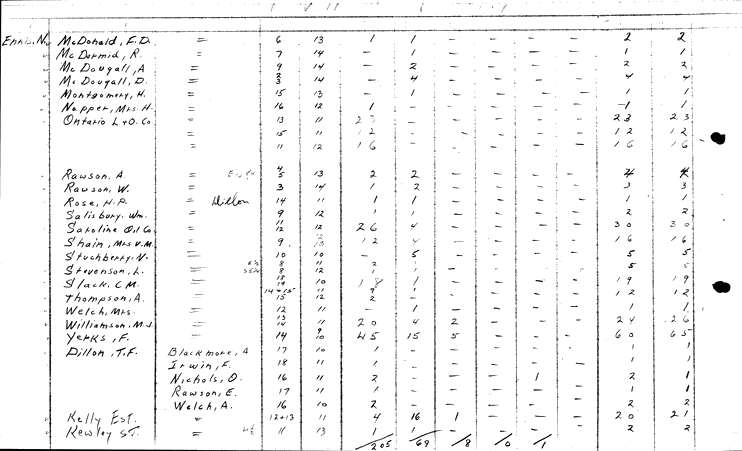 Ennis. N. McDonald, F.D. = 6 13 1 1 - - - - 2 2
McDermid, R. = 7 14 - 1 - - - - 1 1
McDougall, A = 9 14 - 2 - - - - 2 2
McDougall, D. = 14 - 4 - - - - 4 4
Montgomery, H. = 15 13 - 1 - - - - 1 1
Napper, Mrs. H. = 16 12 1 - - - - 1 1
Ontario L+O. Co. = 13 11 23 - - - - - 23 23
= 15 11 12 - - - - - 12 12
= 11 12 16 - - - - - 16 16
Rawson, A. = 13 2 2 - - - - 4 4
Rawson, W. = 3 14 1 2 - - - - 3 3
Rose, H.P. = Dillon 14 11 1 1 - - - - 1 1
Salisbury, Wm. = 9 12 1 1 - - - - 2 2
Saroline Oil Co. = 12 26 4 - - - - 30 30
Shain, Mrs V.M. = 9 13 12 4 - - - - 16 16
Stuchberry. N. = 10 10 - 5 - - - - 5 5
Stevenson, L. = 8 12 1 1 - - - -
Slack, C.M. = 19 10 18 1 - - - - 19 19
Thompson, A. = 15 12 2 - - - -
Welch, Mrs. = 12 11 - 1 - - - - 1 1
Williamson, M.J. = 14 11 20 4 2 - - - 24 26
Yerks, F. = 14 10 45 15 5 - - - 60 65
Dillon, T.F. Blackmore, A 17 10 1 - - - - - 1 1
Irwin, F. 18 11 1 - - - - - 1 1
Nichols, O. 16 11 2 - - - 1 - 2 1
Rawson, E. 17 11 1 - - - - - 1 1
Welch, A. 16 10 2 - - - - - 2 2
Kelly Est. = 12+13 11 4 16 1 - - - 20 21
Kewley ST. = 11 13 1 1 - - - - 2 2
/205 /69 /8 /0 /1